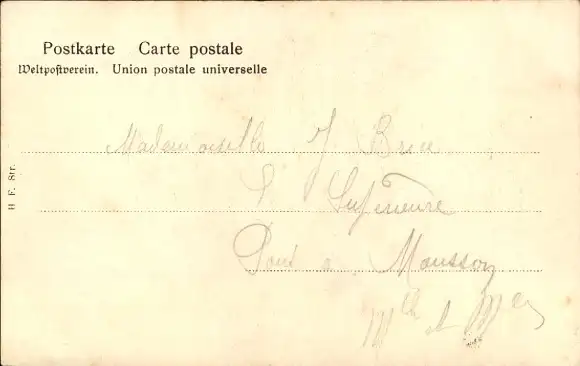 Postkarte Carte postale
Weltpostverein. Union postale universelle
Mademoiselle J Brice
E. Supérieure
Pont à Mousson
Mthe et Melle
H F. Str.